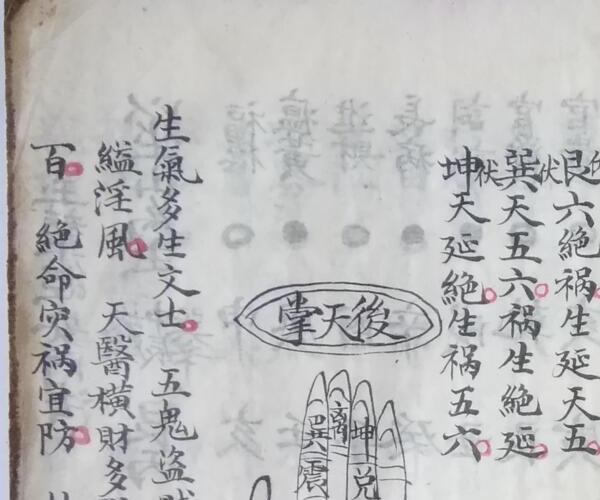 艮六絶祸生延天五
伏
巽天五六祸生絶延
伏
坤天延絶生祸五六
後天掌
離
坤
巽
震
兑
生氣多生文士 五鬼盗
縊淫風 天醫橫財多
百 絶命灾祸宜防